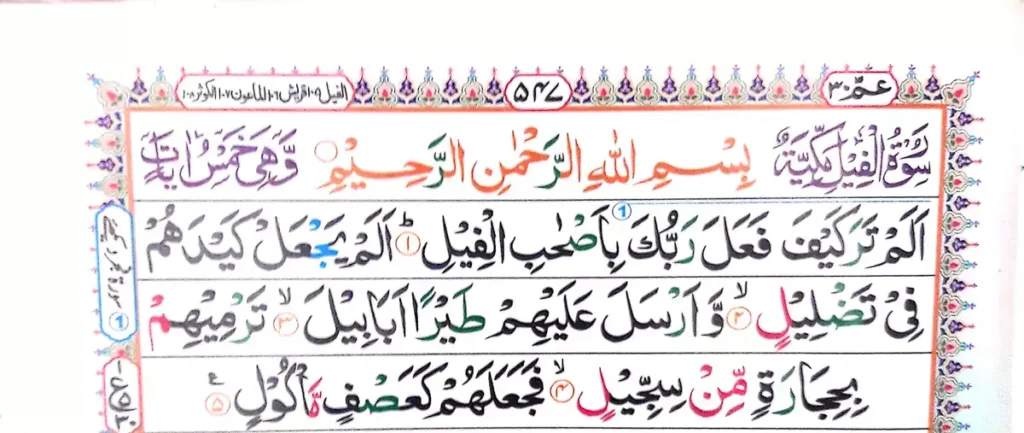 عـمّ ٣٠
٥٤٧
الفيل ١٠٥ قريش ١٠٦ الماعون ١٠٧ الكوثر ١٠٨
سُوْرَةُ الْفِيْلِ مَكِّيَّةٌ بِسْمِ اللّٰهِ الرَّحْمٰنِ الرَّحِيْمِ وَّهِيَ خَمْسُ اٰيَاتٍ
اَلَمْ تَرَ كَيْفَ فَعَلَ رَبُّكَ بِاَصْحٰبِ الْفِيْلِ ؕ ١ اَلَمْ يَجْعَلْ كَيْدَهُمْ
فِيْ تَضْلِيْلٍ ۙ ٢ وَّاَرْسَلَ عَلَيْهِمْ طَيْرًا اَبَابِيْلَ ۙ ٣ تَرْمِيْهِمْ
بِحِجَارَةٍ مِّنْ سِجِّيْلٍ ۙ ٤ فَجَعَلَهُمْ كَعَصْفٍ مَّاْكُوْلٍ ٥